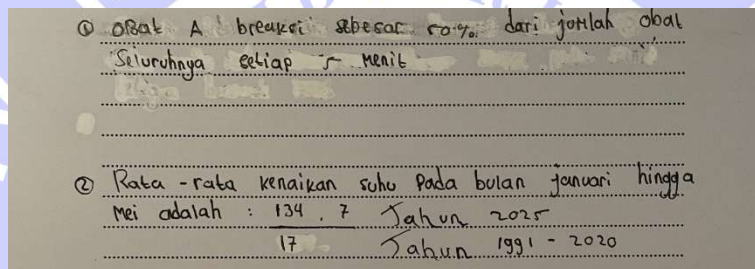 ① Obat A breaksi sebesar 50% dari jumlah obat
Seluruhnya setiap 5 Menit
② Rata-rata kenaikan suhu Pada bulan januari hingga
Mei adalah : 134,7 Tahun 2025
17 Tahun 1991 - 2020